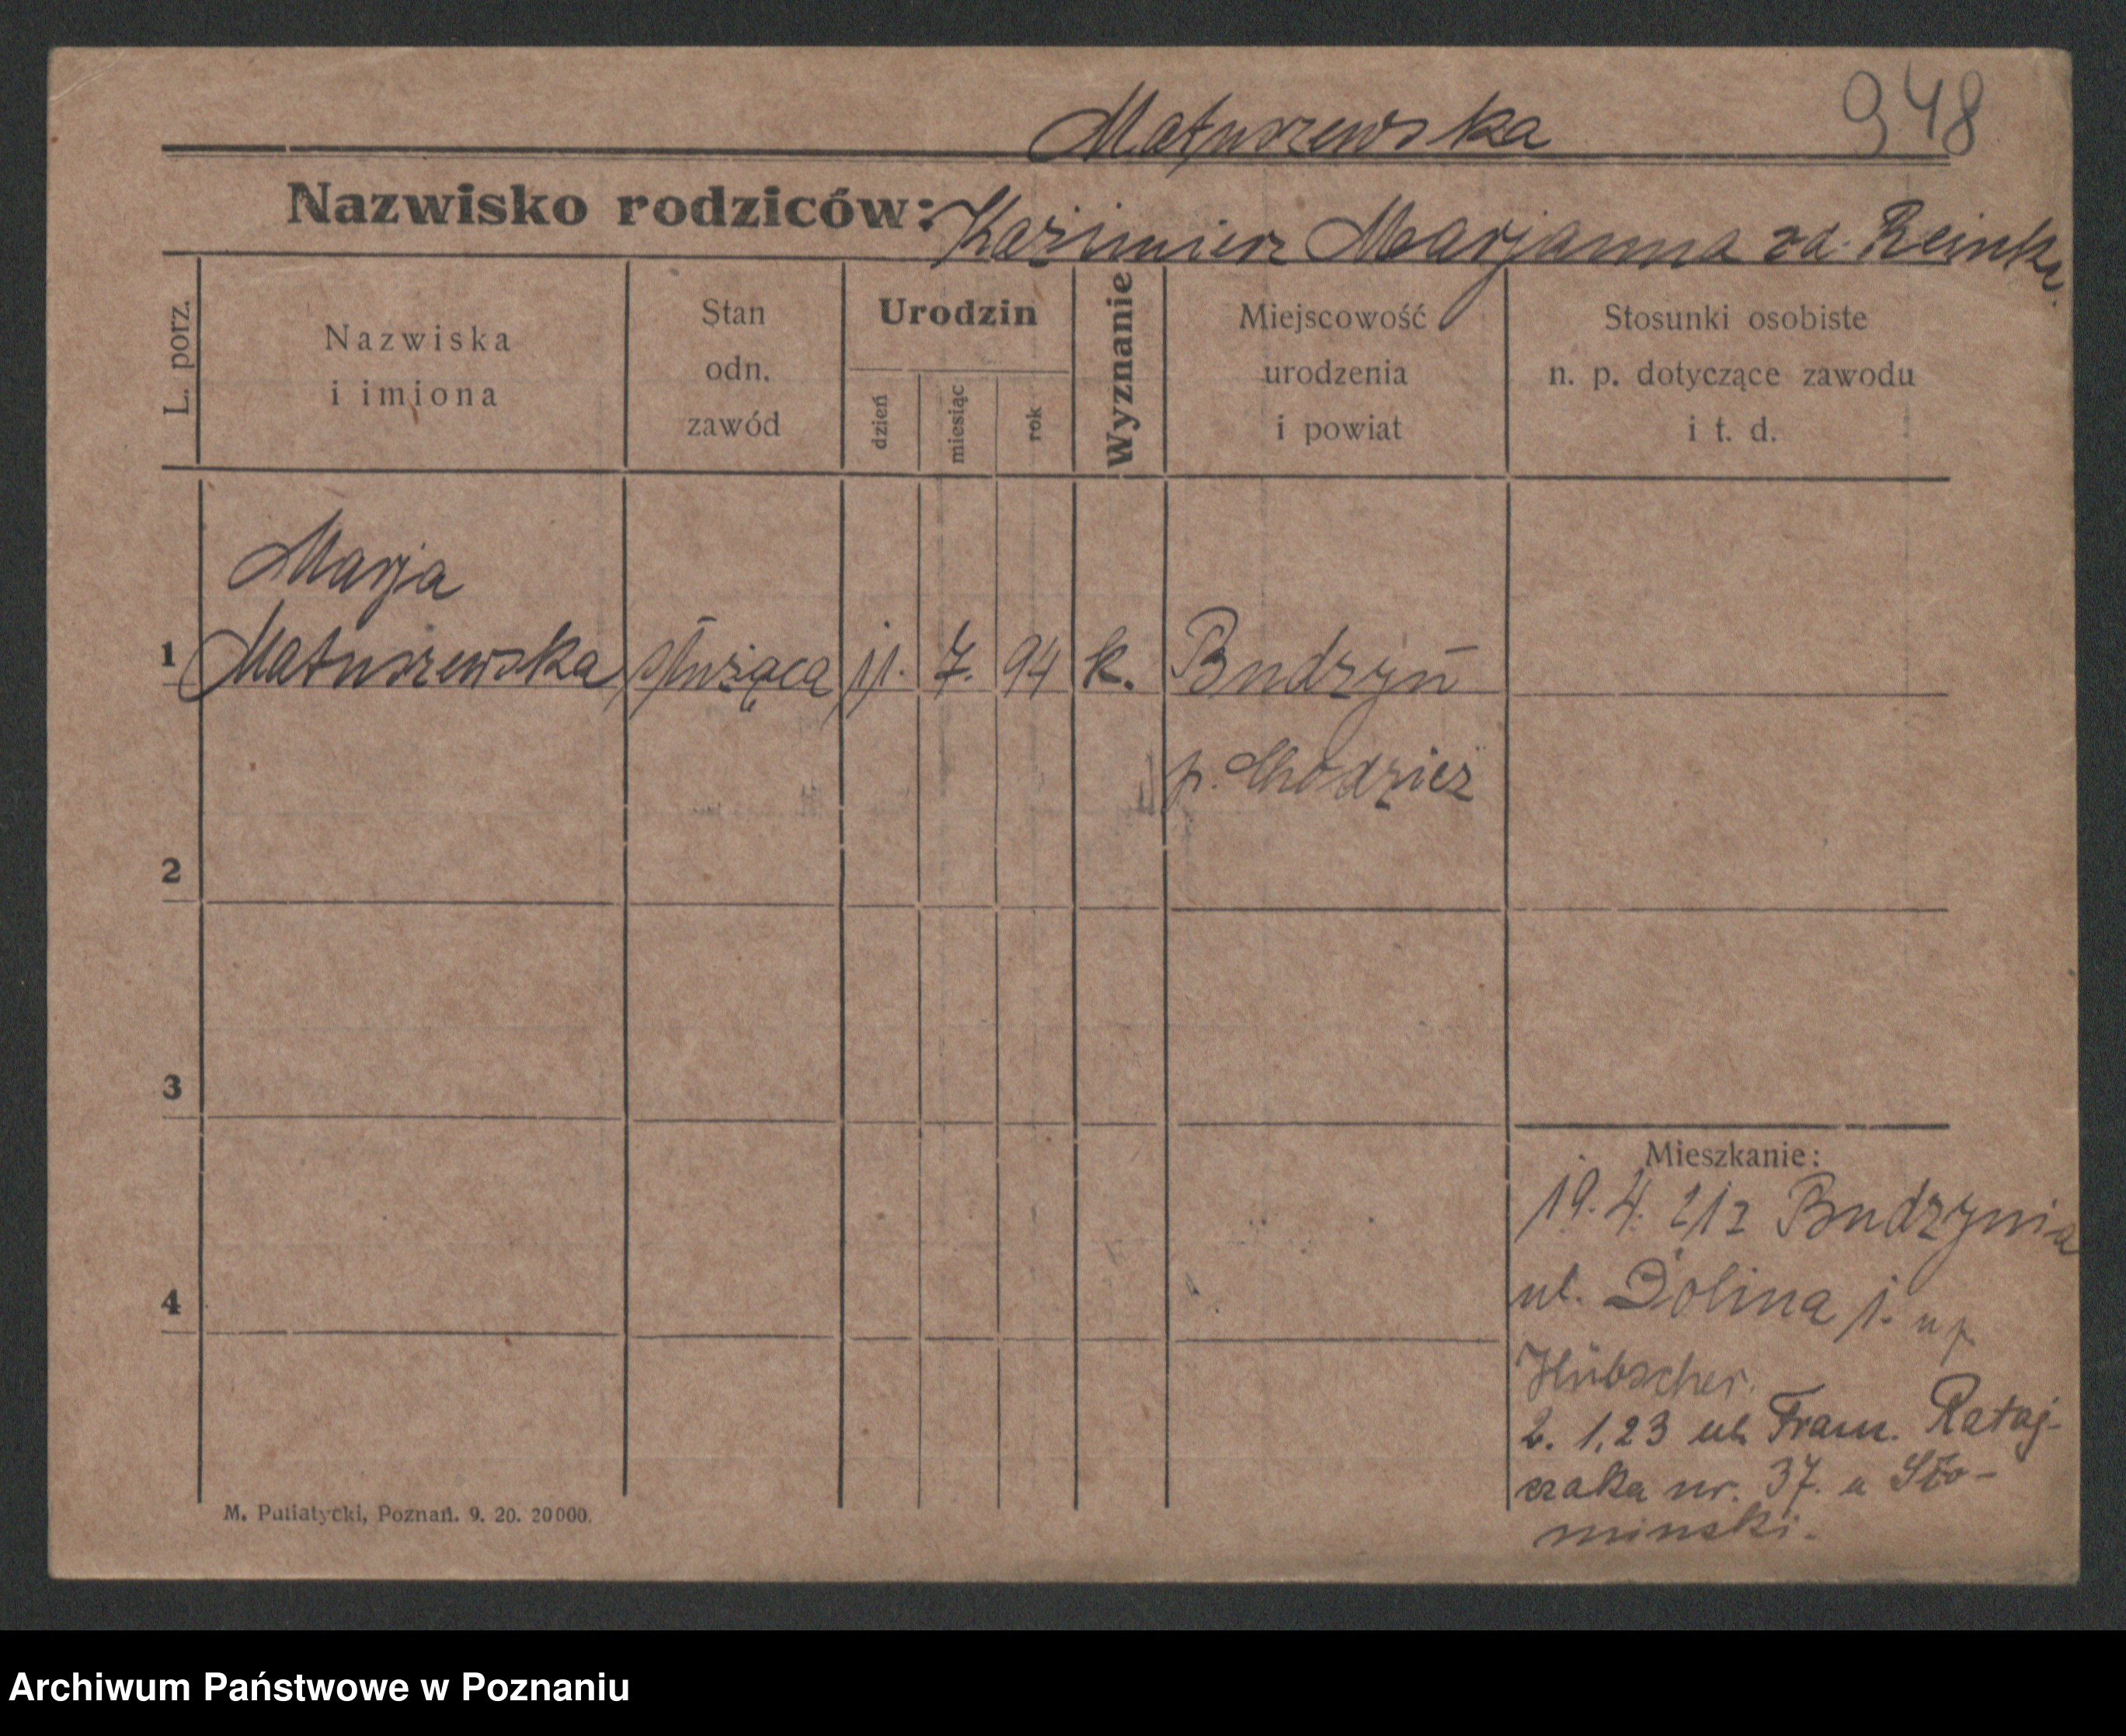 Matuszewska
948
Nazwisko rodziców: Kazimierz Marjanna zd. Reinke
L. porz.
Nazwiska
i imiona
Stan
odn.
zawód
Urodzin
dzień
miesiąc
rok
Wyznanie
Miejscowość
urodzenia
i powiat
Stosunki osobiste
n. p. dotyczące zawodu
i t. d.
Marja
1 Matuszewska służąca 11. 7. 94 k. Budzyń
p. Chodzież
2
3
4
Mieszkanie:
19. 4. 21 z Budzynia
ul. Dolina 1.
Hübscher.
2. 1. 23 ul. Franc. Rataj-
czaka nr. 37. u Sło-
minski.
M. Putiatycki, Poznań. 9. 20. 20000.
Archiwum Państwowe w Poznaniu